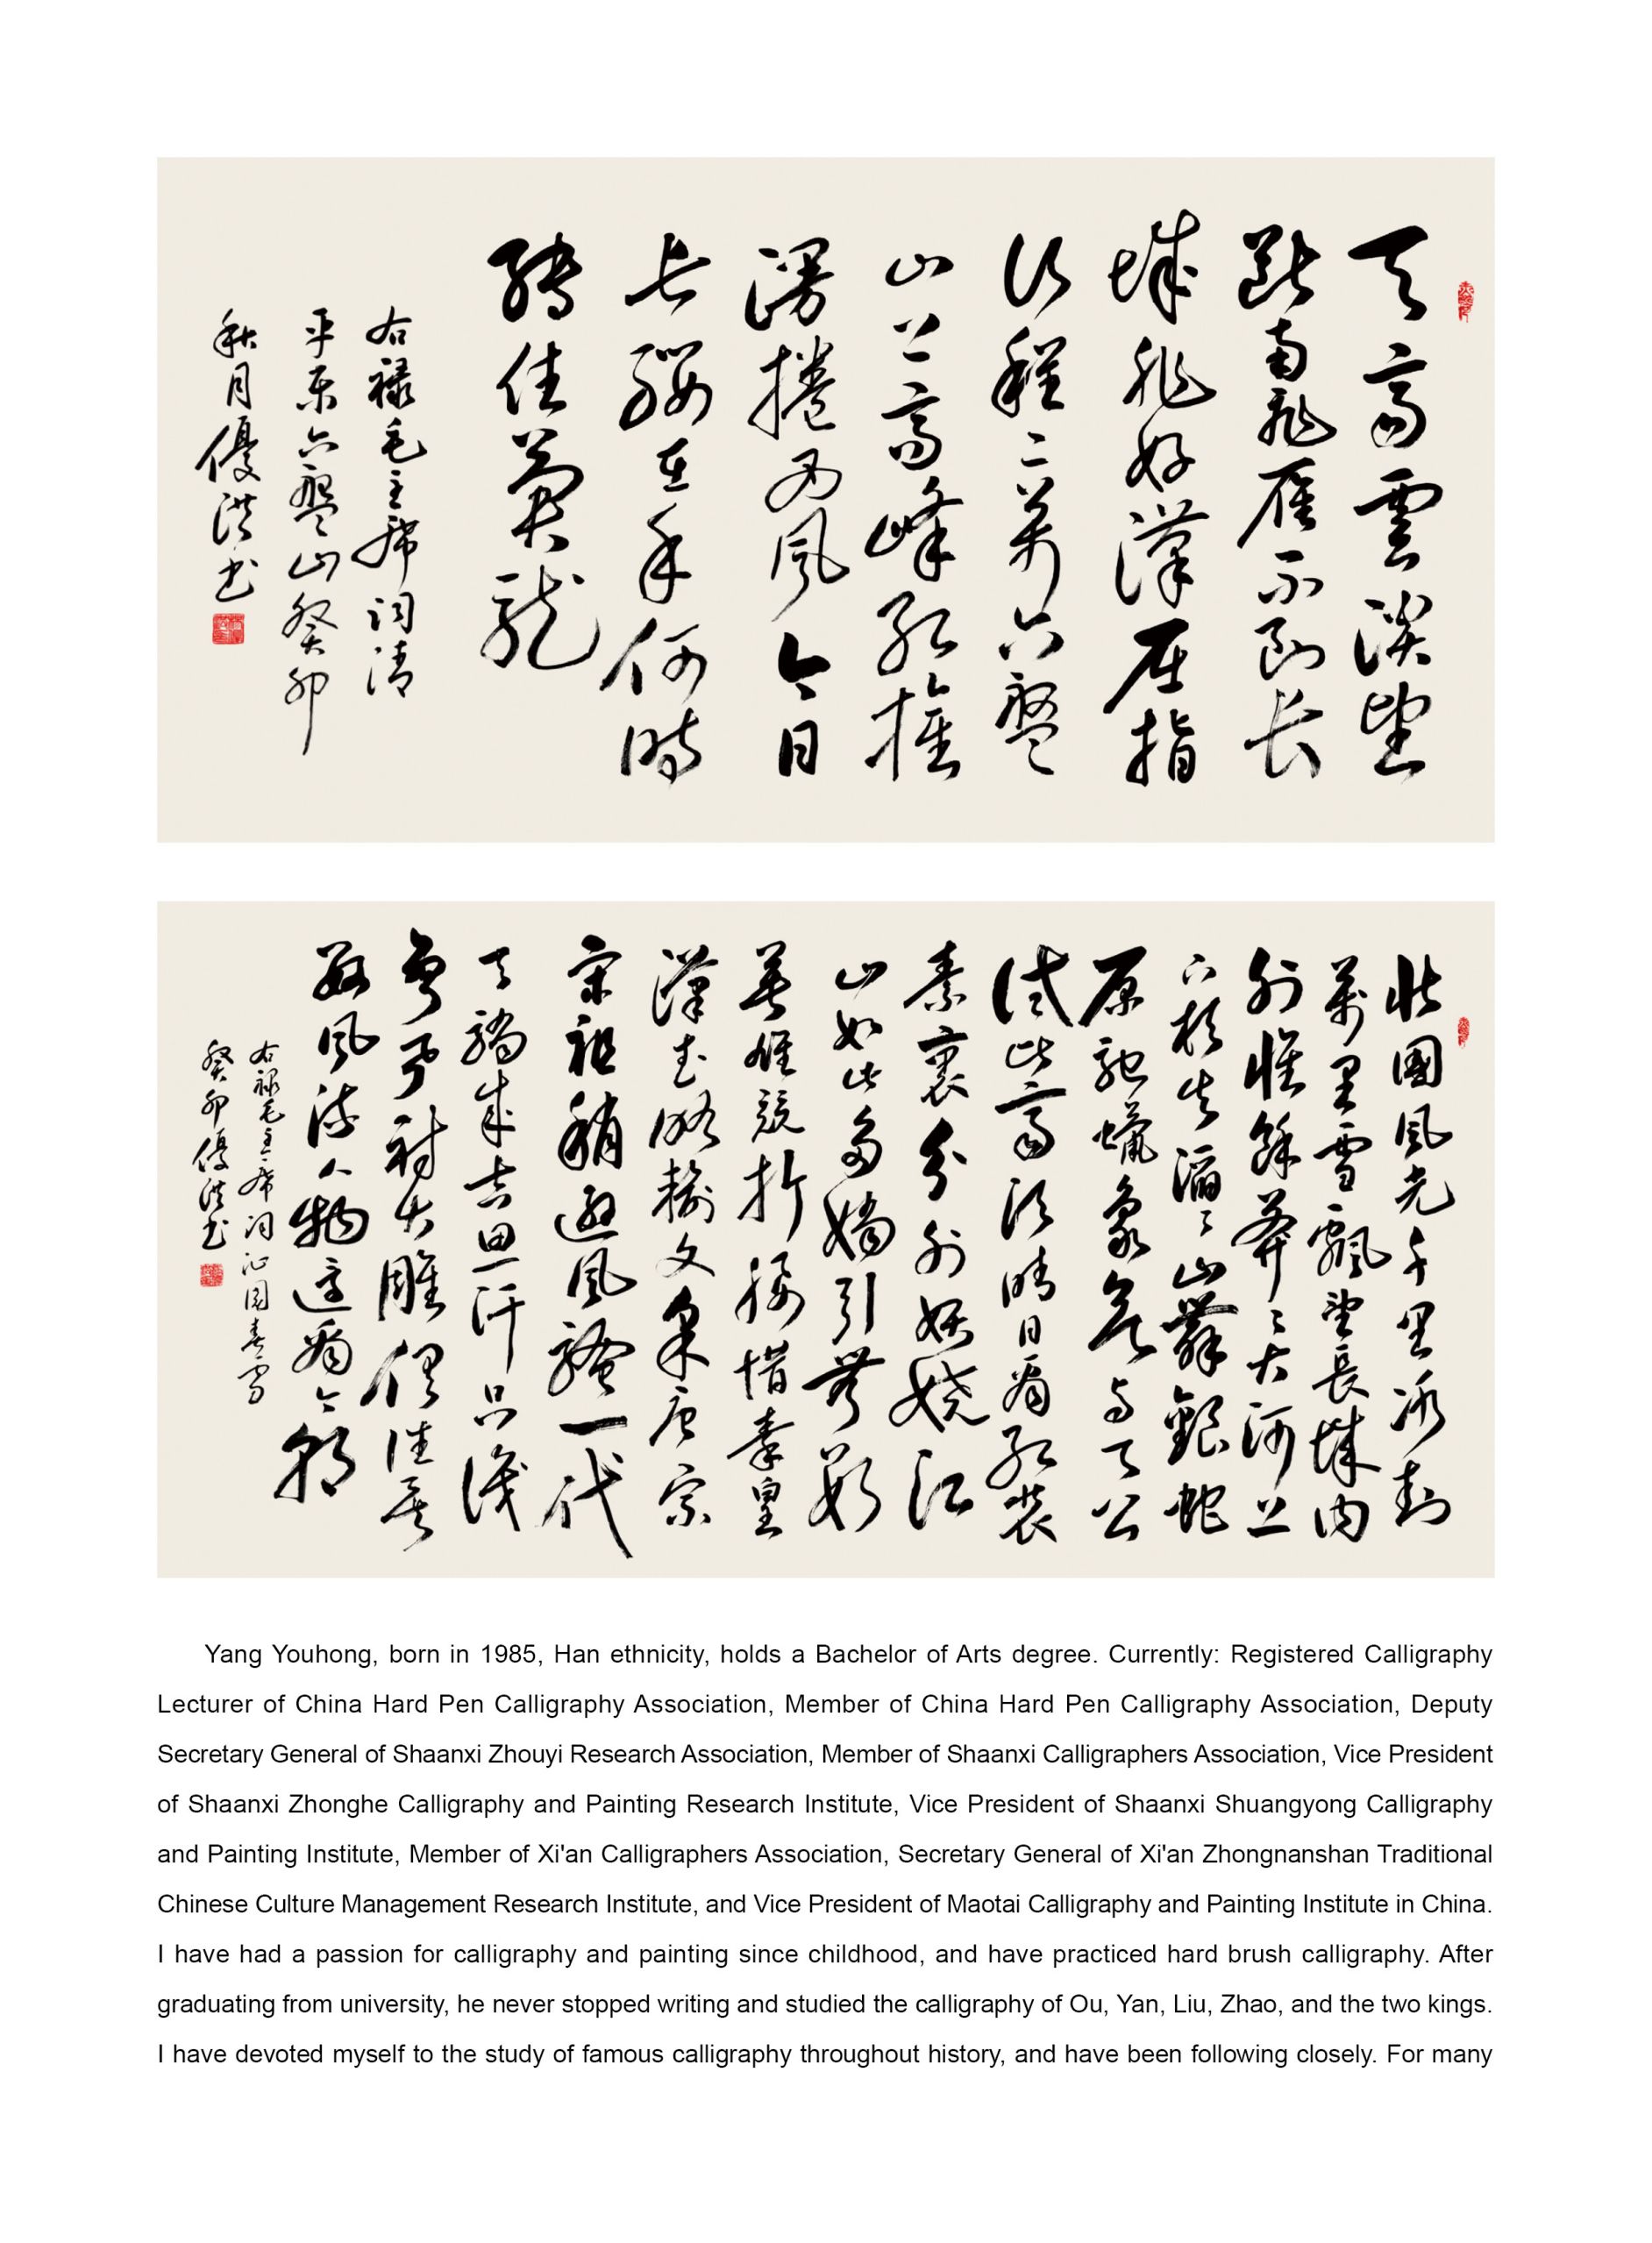 天高雲淡望
斷南飛雁不到长
城非好漢屈指
行程二萬六盤
山上高峰紅旗
漫捲西風今日
长纓在手何時
縛住蒼龍
右禄毛主席词清
平乐六盤山癸卯
秋月優洪书
北國風光千里冰封
萬里雪飄望長城内
外惟餘莽〻大河上
下頓失滔〻山舞銀蛇
原馳蠟象欲与天公
試比高須晴日看紅裝
素裹分外妖嬈江
山如此多嬌引無數
英雄競折腰惜秦皇
漢武略輸文采唐宗
宋祖稍遜風騷一代
天驕成吉思汗只識
彎弓射大雕俱往矣
數風流人物還看今朝
右禄毛主席词沁园春雪
癸卯優洪书
Yang Youhong, born in 1985, Han ethnicity, holds a Bachelor of Arts degree. Currently: Registered Calligraphy
Lecturer of China Hard Pen Calligraphy Association, Member of China Hard Pen Calligraphy Association, Deputy
Secretary General of Shaanxi Zhouyi Research Association, Member of Shaanxi Calligraphers Association, Vice President
of Shaanxi Zhonghe Calligraphy and Painting Research Institute, Vice President of Shaanxi Shuangyong Calligraphy
and Painting Institute, Member of Xi'an Calligraphers Association, Secretary General of Xi'an Zhongnanshan Traditional
Chinese Culture Management Research Institute, and Vice President of Maotai Calligraphy and Painting Institute in China.
I have had a passion for calligraphy and painting since childhood, and have practiced hard brush calligraphy. After
graduating from university, he never stopped writing and studied the calligraphy of Ou, Yan, Liu, Zhao, and the two kings.
I have devoted myself to the study of famous calligraphy throughout history, and have been following closely. For many